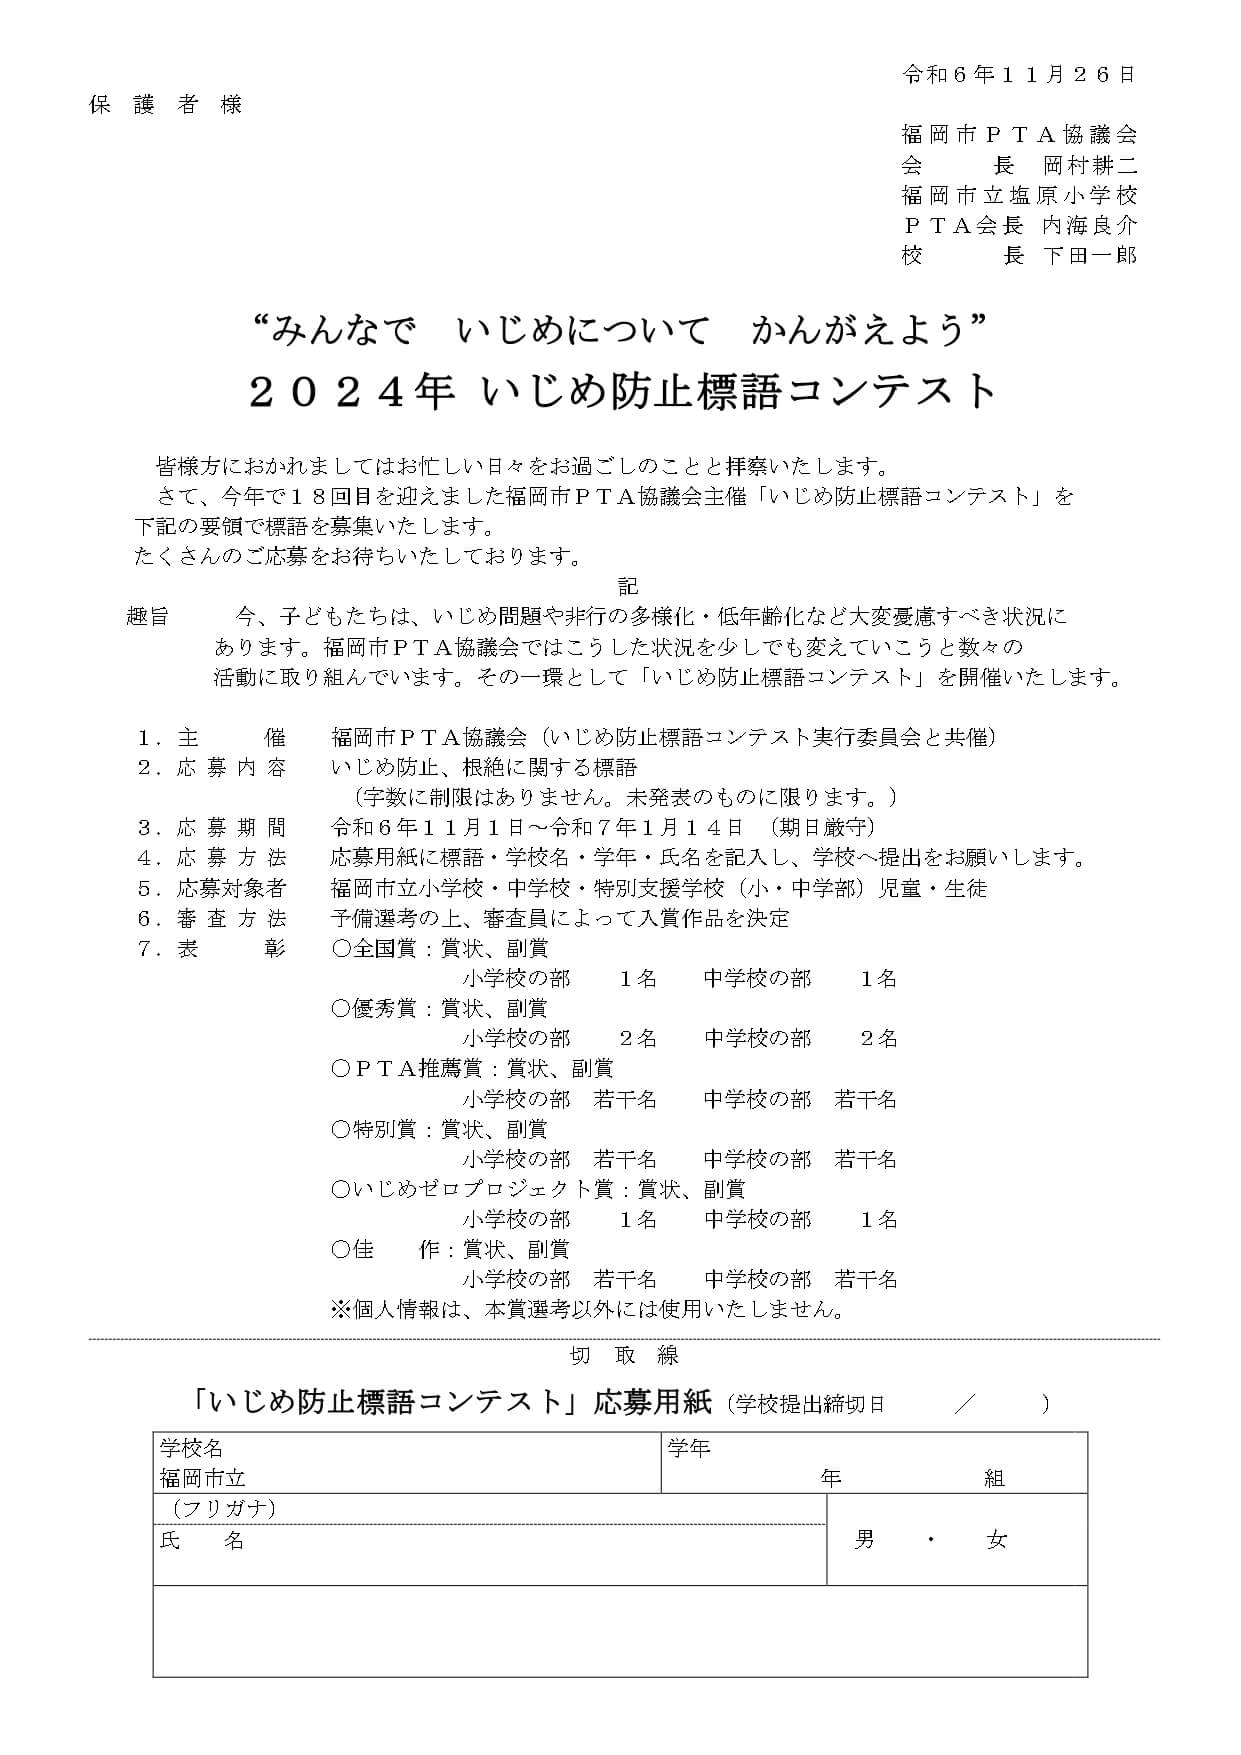 令和６年１１月２６日
保　護　者　様
福岡市ＰＴＡ協議会
会　　　長　岡村耕二
福岡市立塩原小学校
ＰＴＡ会長 内海良介
校　　　　長 下田一郎
“みんなで　いじめについて　かんがえよう”
２０２４年 いじめ防止標語コンテスト
皆様方におかれましてはお忙しい日々をお過ごしのことと拝察いたします。
さて、今年で１８回目を迎えました福岡市ＰＴＡ協議会主催「いじめ防止標語コンテスト」を
下記の要領で標語を募集いたします。
たくさんのご応募をお待ちいたしております。
記
趣旨　　　今、子どもたちは、いじめ問題や非行の多様化・低年齢化など大変憂慮すべき状況に
あります。福岡市ＰＴＡ協議会ではこうした状況を少しでも変えていこうと数々の
活動に取り組んでいます。その一環として「いじめ防止標語コンテスト」を開催いたします。
１．主　　　催　　福岡市ＰＴＡ協議会（いじめ防止標語コンテスト実行委員会と共催）
２．応 募 内 容　　いじめ防止、根絶に関する標語
（字数に制限はありません。未発表のものに限ります。）
３．応 募 期 間　　令和６年１１月１日～令和７年１月１４日　（期日厳守）
４．応 募 方 法　　応募用紙に標語・学校名・学年・氏名を記入し、学校へ提出をお願いします。
５．応募対象者　　福岡市立小学校・中学校・特別支援学校（小・中学部）児童・生徒
６．審 査 方 法　　予備選考の上、審査員によって入賞作品を決定
７．表　　　彰　　○全国賞：賞状、副賞
小学校の部　　１名　　中学校の部　　１名
○優秀賞：賞状、副賞
小学校の部　　２名　　中学校の部　　２名
○ＰＴＡ推薦賞：賞状、副賞
小学校の部　若干名　　中学校の部　若干名
○特別賞：賞状、副賞
小学校の部　若干名　　中学校の部　若干名
○いじめゼロプロジェクト賞：賞状、副賞
小学校の部　　１名　　中学校の部　　１名
○佳　　作：賞状、副賞
小学校の部　若干名　　中学校の部　若干名
※個人情報は、本賞選考以外には使用いたしません。
切　取　線
「いじめ防止標語コンテスト」応募用紙（学校提出締切日　　　／　　　）
学校名　　学年
福岡市立　　年　　　　　　組
（フリガナ）
氏　　名　　男　　・　　女